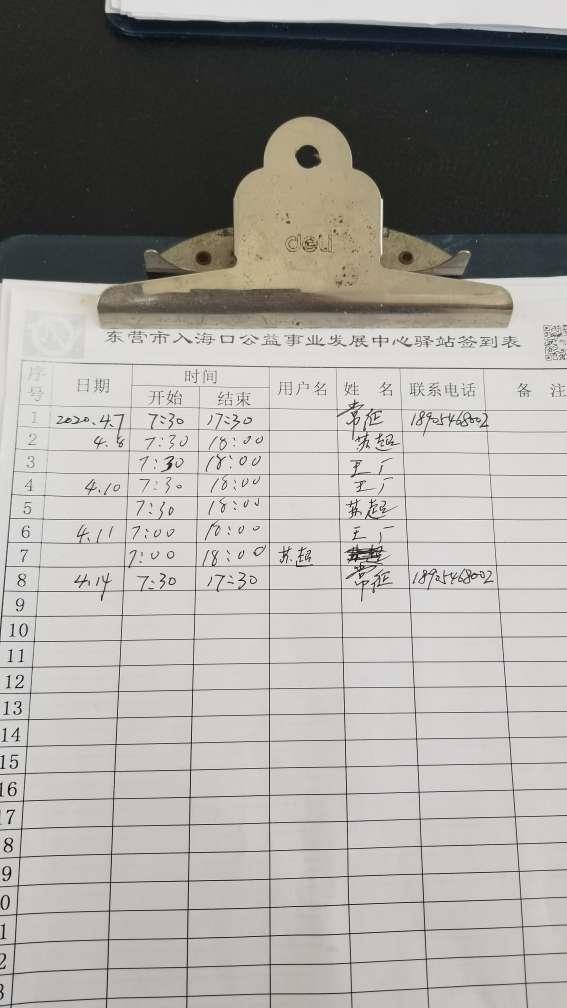 deli
东营市入海口公益事业发展中心驿站签到表
序号 日期 时间 用户名 姓 名 联系电话 备 注
开始 结束
1 2020.4.7 7:30 17:30 常征 18905468002
2 4.8 7:30 18:00 苏超
3 7:30 18:00 王广
4 4.10 7:30 18:00 王广
5 7:30 18:00 苏超
6 4.11 7:00 18:00 王广
7 7:00 18:00 苏超
8 4.14 7:30 17:30 常征 18905468002
9
10
11
12
13
14
15
16
17
8
9
0
1
2
3